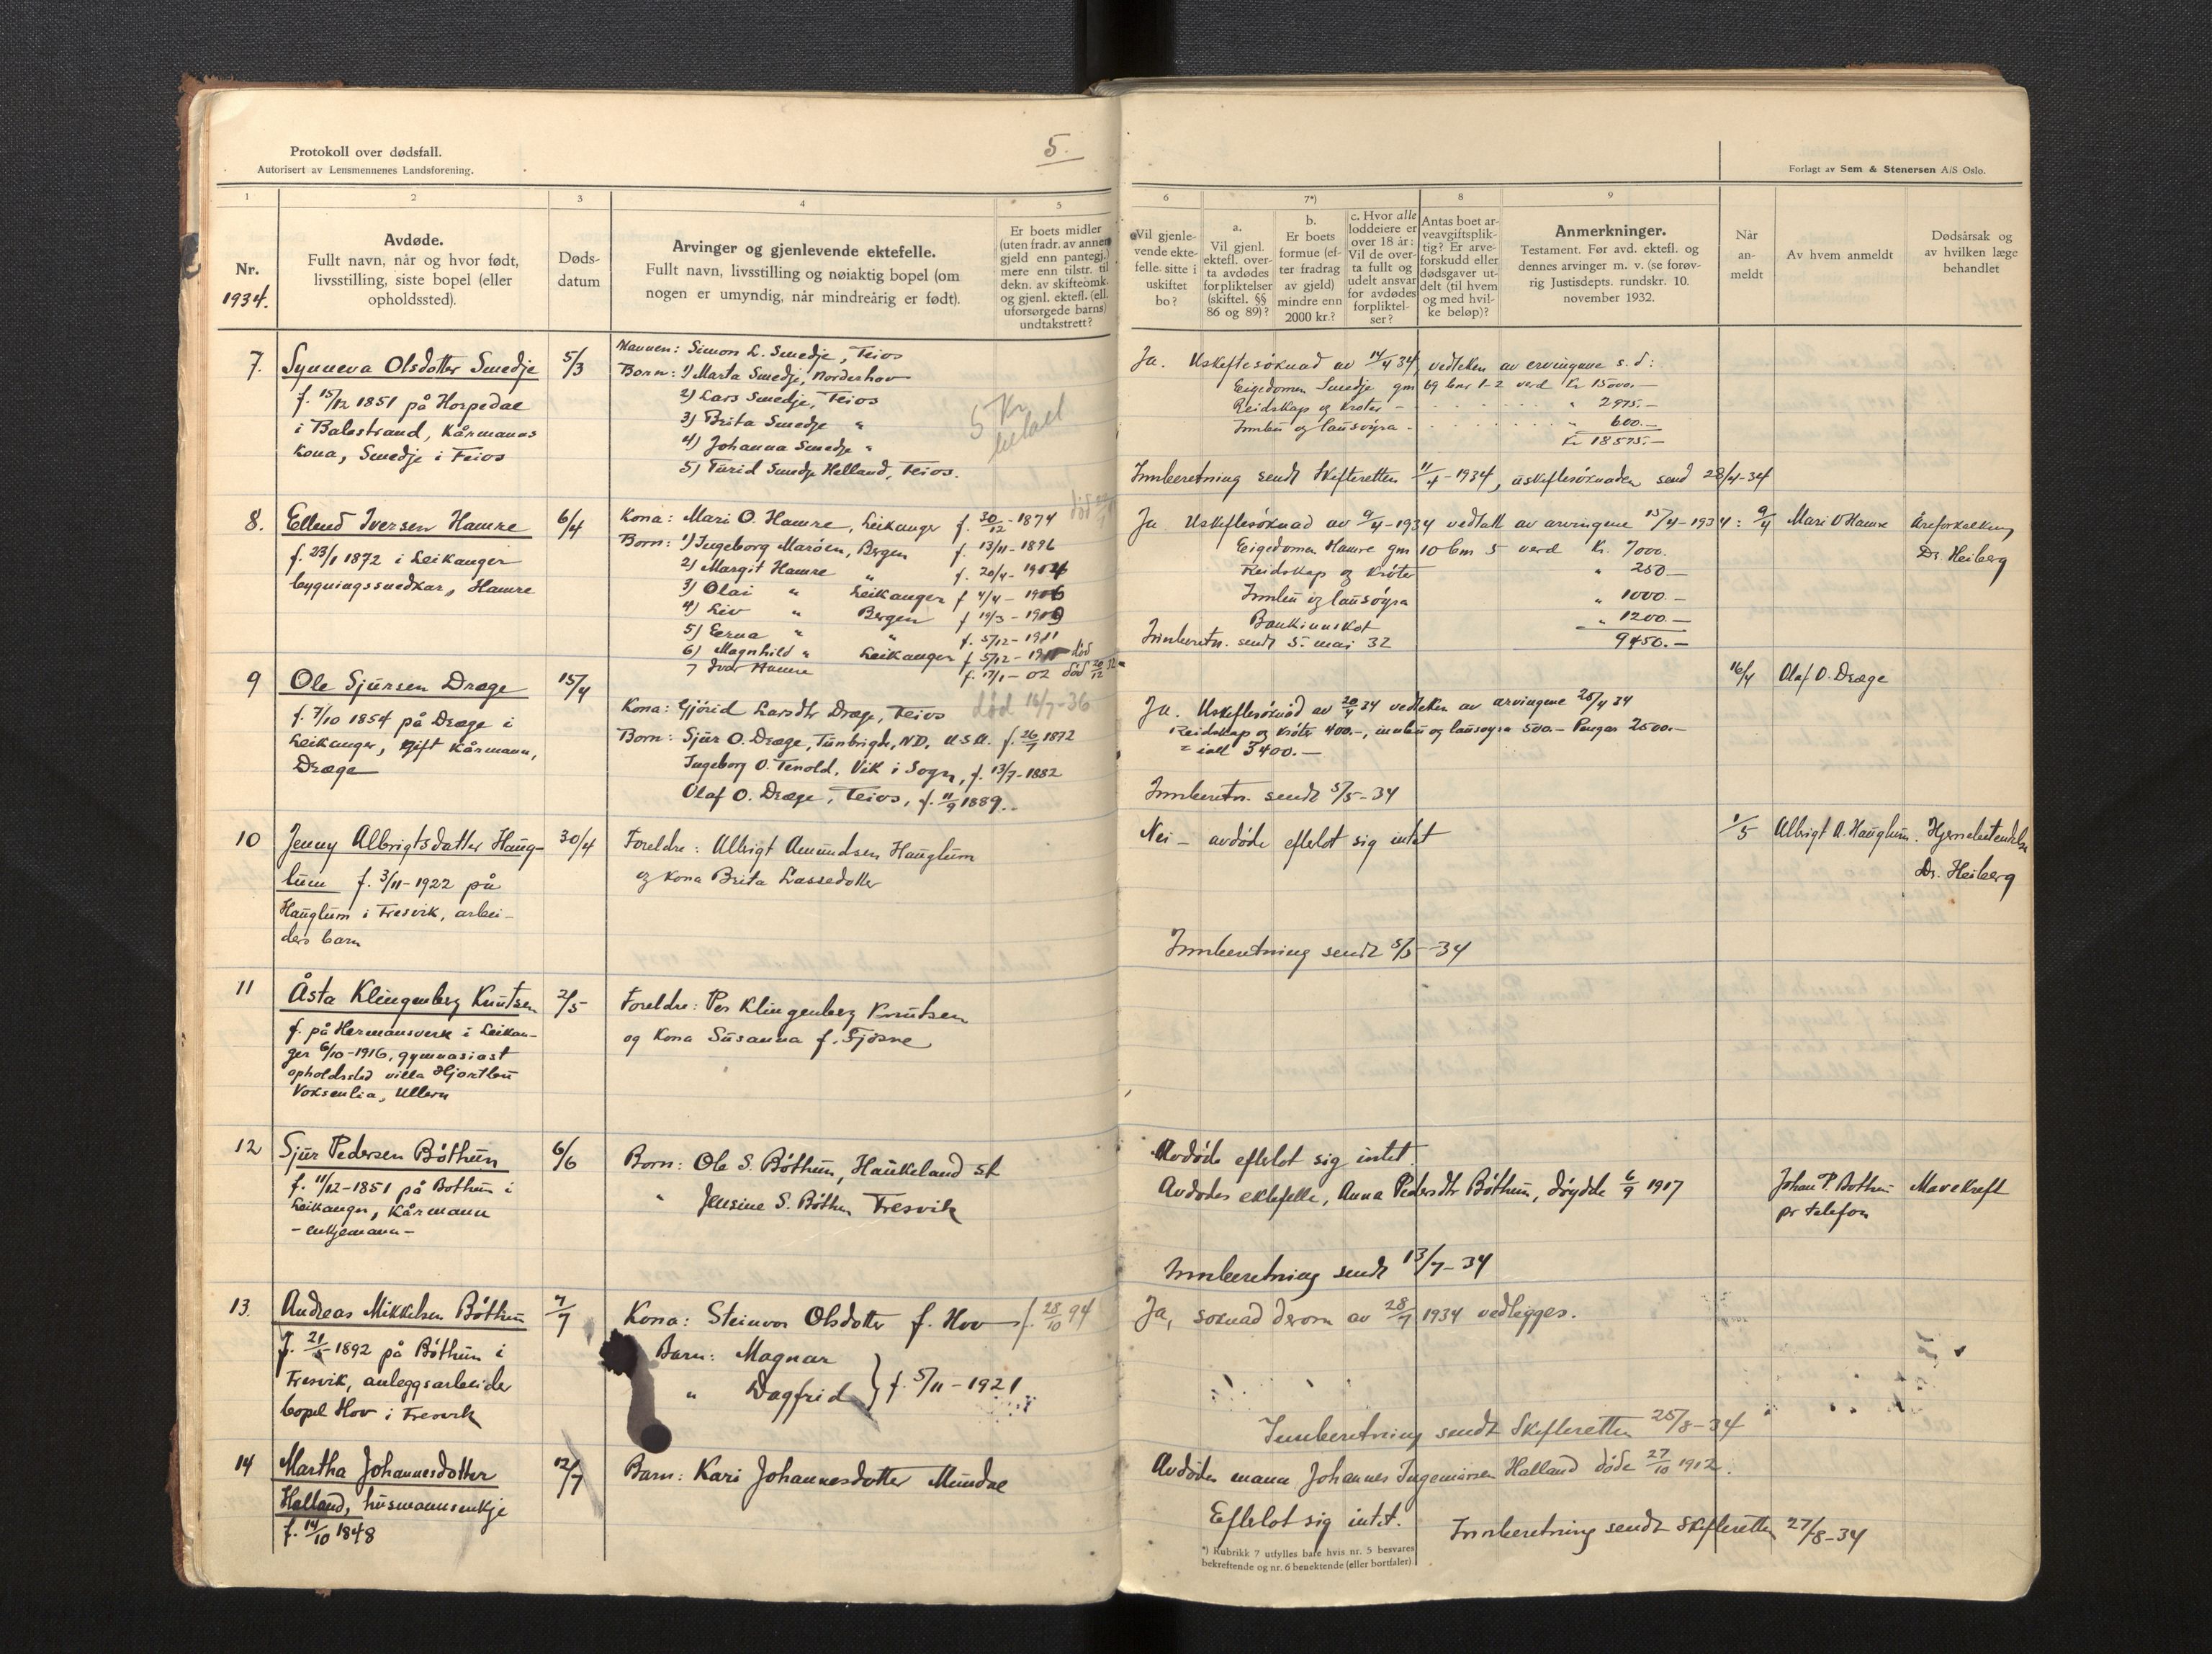 5.
Protokoll over dødsfall.
Autorisert av Lensmennenes Landsforening.
1
2
3
4
5
Nr.
1934.
Avdøde.
Fullt navn, når og hvor født,
livsstilling, siste bopel (eller
opholdssted).
Døds-
datum
Arvinger og gjenlevende ektefelle.
Fullt navn, livsstilling og nøiaktig bopel (om
nogen er umyndig, når mindreårig er født).
Er boets midler
(uten fradr. av annen
gjeld enn pantegj.)
mere enn tilstr. til
dekn. av skifteomk.
og gjenl. ektefl. (ell.
uforsørgede barns)
undtakstrett?
7.
Synneva Olsdotter Smedje
f. 15/12 1851 på Horpedal
i Balestrand, kårmanns
kona, Smedje i Feios
5/3
Mannen: Simon L. Smedje, Feios
Born: 1) Marta Smedje, Norderhov
2) Lars Smedje, Feios
3) Brita Smedje "
4) Johanna Smedje "
5) Turid Smedje Helland, Feios.
5 Kr
betalt
8.
Ellend Iversen Hamre
f. 23/1 1872 i Leikanger
bygningssnedkar, Hamre
6/4
Kona: Mari O. Hamre, Leikanger f. 30/12-1874 død
Born: 1) Ingeborg Marøen, Bergen f. 13/11-1896
2) Margit Hamre " f. 20/4-1904
3) Olai " Leikanger f 4/4-1906
4) Liv " Bergen f 19/3-1909
5) Erna " " f. 5/12-1911
6) Magnhild " Leikanger f 5/12-1911 død
7 Ivar Hamre f. 17/1-02 død 20/12 32
9
Ole Sjursen Drægе
f. 7/10 1854 på Dræge i
Leikanger, gift kårmann,
Dræge
15/4
Kona: Gjørid Larsdtr Dræge, Feios død 16/7-36
Born: Sjur O. Dræge, Tunbrigde, N.D. U.S.A. f. 26/7 1872
Ingeborg O. Tenold, Vik i Sogn, f. 13/7-1882
Olaf O. Dræge, Feios, f. 11/9 1889.
10
Jenny Albrigtsdatter Haug-
lum f. 3/11-1922 på
Hauglum i Fresvik, arbei-
ders barn
30/4
Foreldre: Albrigt Amundsen Hauglum
og kona Brita Lassedotter
11
Åsta Klingenberg Knutsen
f. på Hermansverk i Leikan-
ger 6/10-1916, gymnasiast
opholdssted villa Hjortbu
Voksenlia, Ullern
2/5
Foreldre: Per Klingenberg Knutsen
og kona Susanna f. Fjøsne
12
Sjur Pedersen Bøthun
f. 11/12-1851 på Bothun i
Leikanger, kårmann
- enkjemann -
6/6
Born: Ole S. Bøthun, Haukeland st
" Jensine S. Bøthun Fresvik
13.
Andreas Mikkelsen Bøthun
f. 21/5-1892 på Bøthun i
Fresvik, anleggsarbeider
bopel Hov i Fresvik
7/7
Kona: Steinvor Olsdotter f. Hov f. 28/10 94
Barn: Magnar
" Dagfrid } f. 5/11-1921
14
Martha Johannesdotter
Halland, husmannsenkje
f. 14/10 1848
12/7
Barn: Kari Johannesdotter Mundal
Forlagt av Sem & Stenersen A/S Oslo.
6
7*)
8
9
Vil gjenle-
vende ekte-
felle sitte i
uskiftet
bo?
a.
Vil gjenl.
ektefl. over-
ta avdødes
forpliktelser
(skiftel. §§
86 og 89)?
b.
Er boets
formue (ef-
ter fradrag
av gjeld)
mindre enn
2000 kr.?
c. Hvor alle
loddeiere er
over 18 år:
Vil de over-
ta fullt og
udelt ansvar
for avdødes
forpliktel-
ser?
Antas boet ar-
veavgiftsplik-
tig? Er arve-
forskudd eller
dødsgaver ut-
delt (til hvem
og med hvil-
ke beløp)?
Anmerkninger.
Testament. Før avd. ektefl. og
dennes arvinger m. v. (se forøv-
rig Justisdepts. rundskr. 10.
november 1932.
Når
an-
meldt
Av hvem anmeldt
Dødsårsak og
av hvilken læge
behandlet
Ja. Uskeftesøknad av 14/4 34, vedteken av ervingane s. d:
Eigedomen Smedje gnr 69 bnr 1-2 verd Kr 15000.-
Reidskap og krøter - " 2975.-
Innbu og lausøyra - " 600.-
Kr 18575.-
Innberetning sendt Skifteretten 11/4-1934, uskiftesøknaden send 28/4-34
Ja Uskiftesøknad av 9/4-1934 vedtatt av arvingene 15/4-1934: 9/4 Mari O Hamre Åreforkalkning
Dr. Heiberg
Eigedomen Hamre gnr 10 bnr 5 verd Kr. 7000.
Reidskap og krøter " 250-
Innbu og lausøyra " 1000.-
Bankinnskot " 1200.-
9450.-
Innberetn. sendt 5. mai 32
16/4 Olaf O. Dræge
Ja. Uskiftesøknad av 20/4 34 vedteken av arvingene 25/4 34
Reidskap og krøter 400.-, innbu og lausøyra 500.- Pengar 2500.-
= ialt 3400.-
Innberetn. sendt 5/5-34
Nei - avdøde efterlot sig intet 1/5 Albrigt A. Hauglum. Hjernebetendelse
Dr. Heiberg
Innberetning sendt 5/5-34
Avdøde efterlot sig intet.
Avdødes ektefelle, Anna Pedersdtr Bøthun, døydde 6/9 1917
Johan P. Bothun
pr telefon
Mavekreft
Innberetning sendt 13/7-34
Ja, søknad derom av 28/7 1934 vedlegges.
Innberetning sendt Skifteretten 25/8-34
Avdødes mann Johannes Ingemarsen Halland døde 27/10 1912.
Efterlot sig intet.
Innberetning sendt Skifteretten 27/8-34
*) Rubrikk 7 utfylles bare hvis nr. 5 besvares
bekreftende og nr. 6 benektende (eller bortfaler).